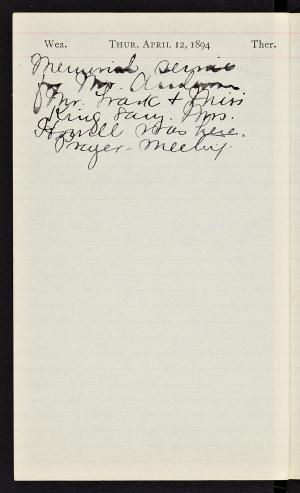 Wea. Thur. April 12, 1894 Ther.
Memorial service
for Mr.
Mr. Trask + Miss
King sang. Mrs.
Howell was here.
Prayer-Meeting.